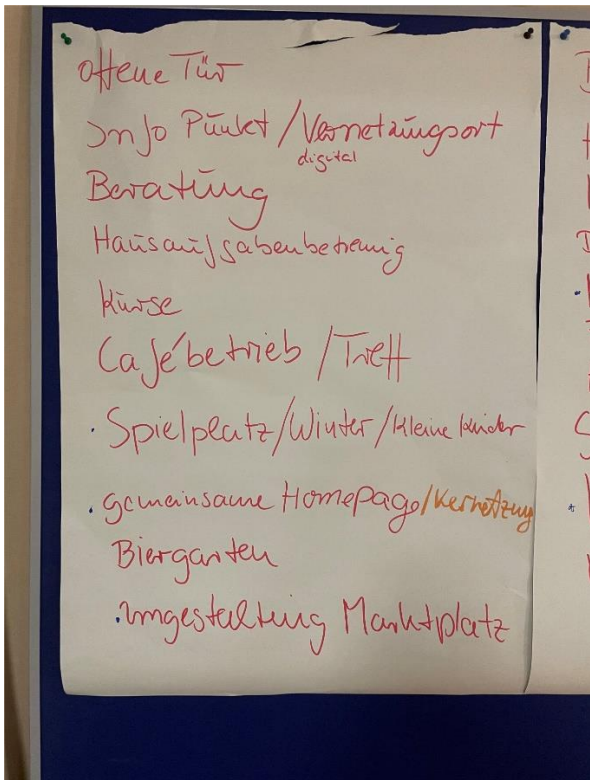 offene Tür
Info Punkt / Vernetzungsort
digital
Beratung
Hausaufgabenbetreuung
Kurse
Cafébetrieb / Treff
· Spielplatz / Winter / kleine Kinder
· gemeinsame Homepage / Vernetzung
Biergarten
· Umgestaltung Marktplatz